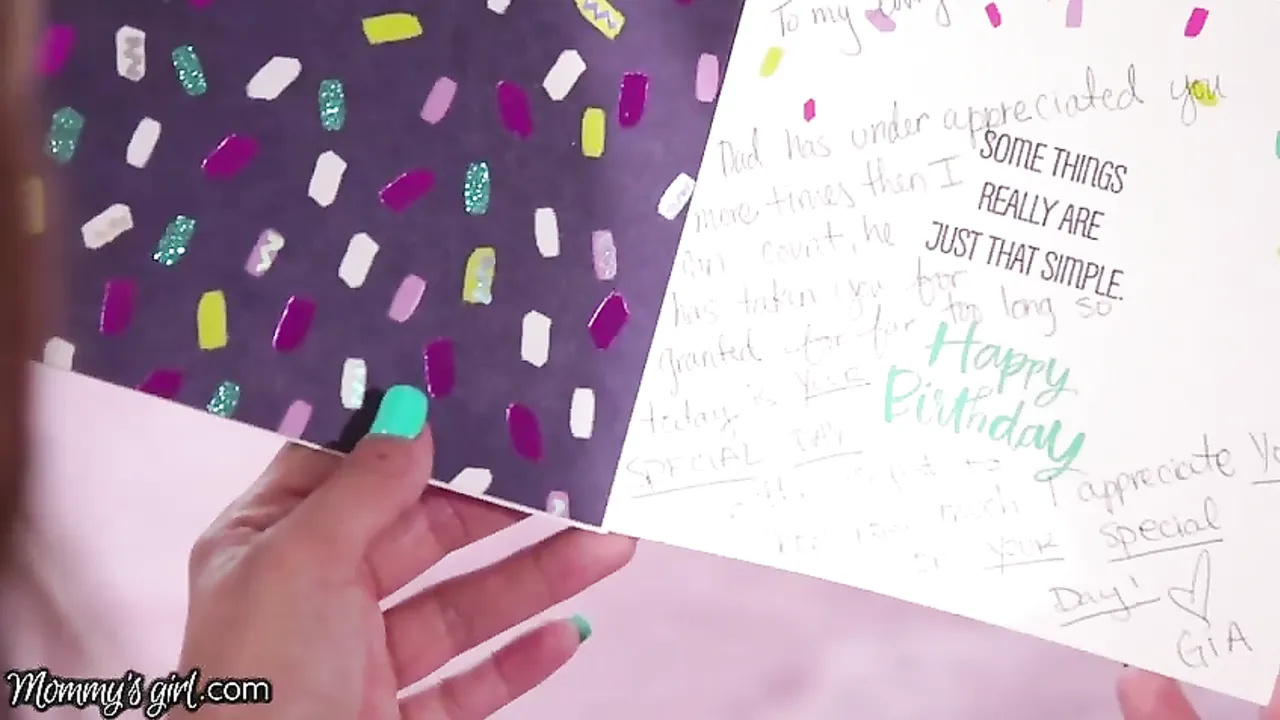 To my loving
Dad has under appreciated you
more times then I
can count, he
has taken you for
granted for far too long so
today is YOUR
SPECIAL DAY
SOME THINGS
REALLY ARE
JUST THAT SIMPLE.
Happy
Birthday
how much I appreciate
YOUR special
Day!
GIA
Mommy's girl.com